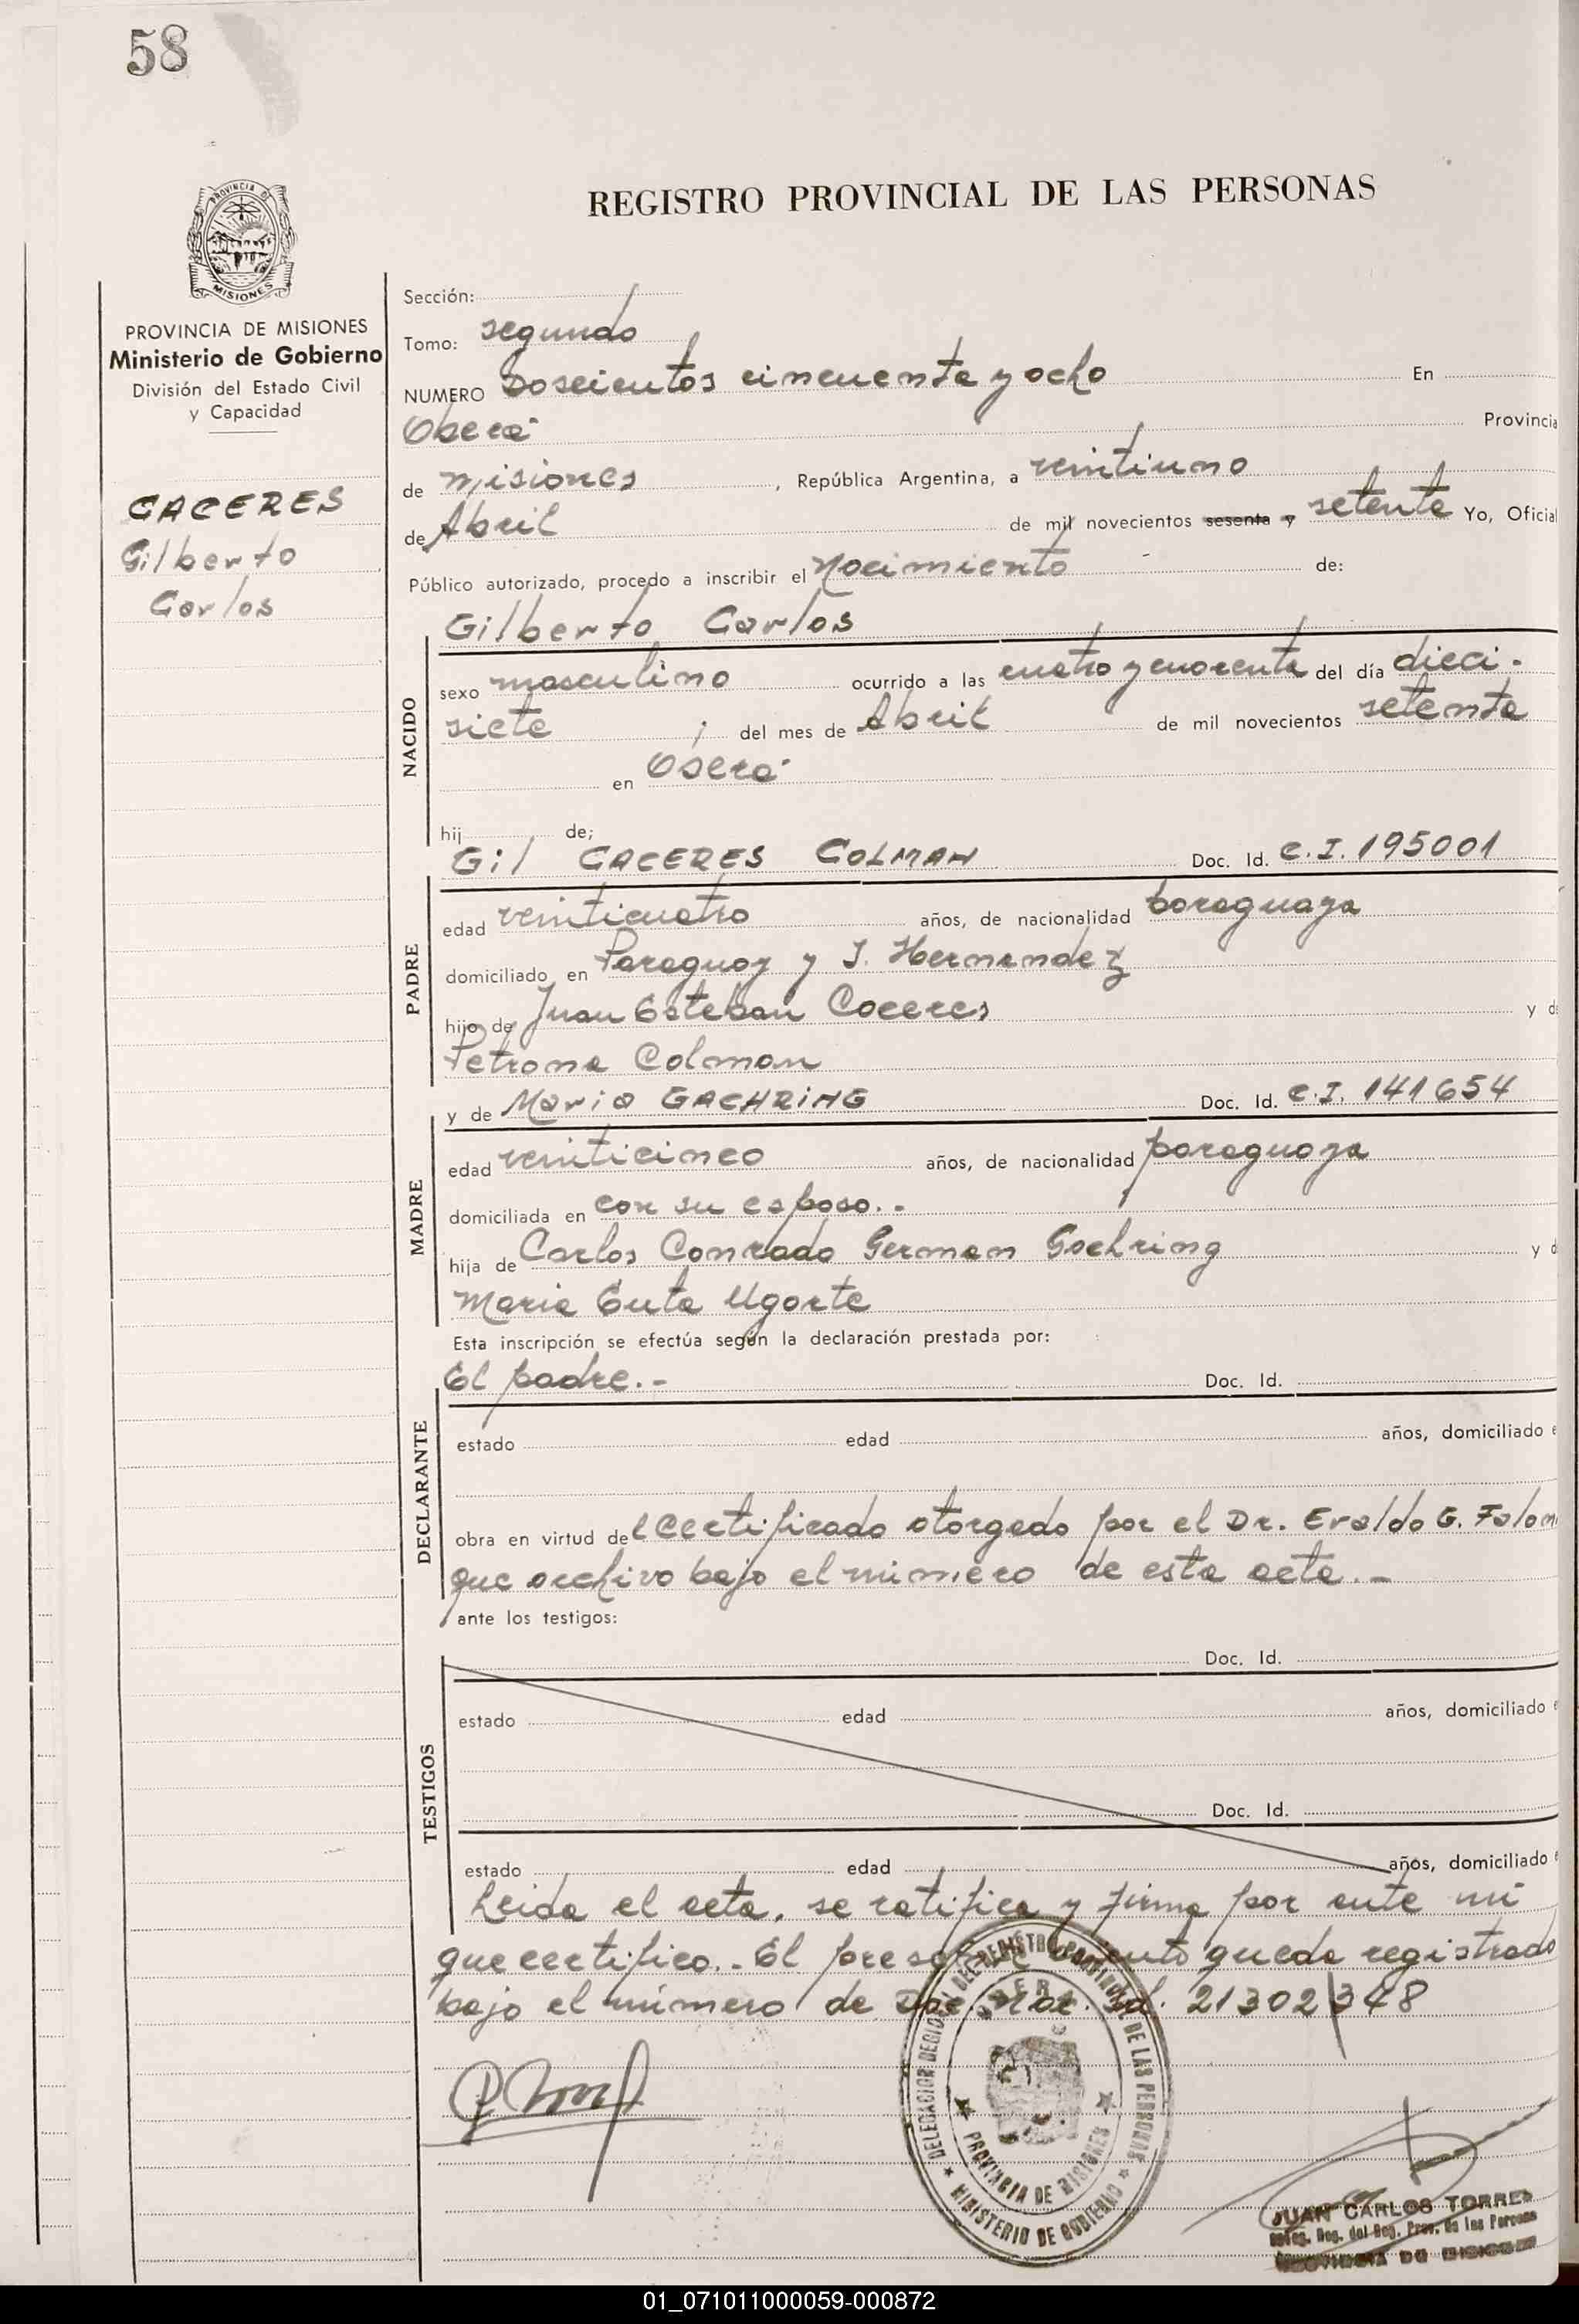 58
PROVINCIA DE
MISIONES
REGISTRO PROVINCIAL DE LAS PERSONAS
PROVINCIA DE MISIONES
Ministerio de Gobierno
División del Estado Civil
y Capacidad
CACERES
Gilberto
Carlos
Sección:
Tomo: segundo
NUMERO Doscientos cincuenta y ocho En
Oberá Provincia
de Misiones, República Argentina, a veintiuno
de Abril de mil novecientos sesenta y setenta Yo, Oficial
Público autorizado, procedo a inscribir el Nacimiento de:
Gilberto Carlos
NACIDO
sexo masculino ocurrido a las cuatro y cuarenta del día dieci-
siete del mes de Abril de mil novecientos setenta
en Oberá
hij de;
Gil CACERES COLMAN Doc. Id. C.I. 195001
PADRE
edad veinticuatro años, de nacionalidad paraguaya
domiciliado en Paraguay y J. Hernandez
hijo de Juan Esteban Caceres y d
Petrona Colman
y de Maria GAEHRING Doc. Id. C.I. 141654
MADRE
edad veinticinco años, de nacionalidad paraguaya
domiciliada en con su esposo.-
hija de Carlos Conrado German Goehring y d
Maria Ugarte
Esta inscripción se efectúa según la declaración prestada por:
El padre.- Doc. Id.
DECLARANTE
estado edad años, domiciliado e
obra en virtud del certificado otorgado por el Dr. Evaldo G.
que archivo bajo el número de esta acta.-
ante los testigos:
Doc. Id.
TESTIGOS
estado edad años, domiciliado e
Doc. Id.
estado edad años, domiciliado
Leida el acta, se ratifica y firma por ante mi
que certifico.- El queda registrado
bajo el número de 21302348
DELEGACION DEL REGISTRO PROVINCIAL DE LAS PERSONAS
OBERA
PROVINCIA DE MISIONES
MINISTERIO DE GOBIERNO
JUAN CARLOS TORRES
Deleg. Reg. del Reg. Prov. de las Personas
PROVINCIA DE MISIONES
01_071011000059-000872